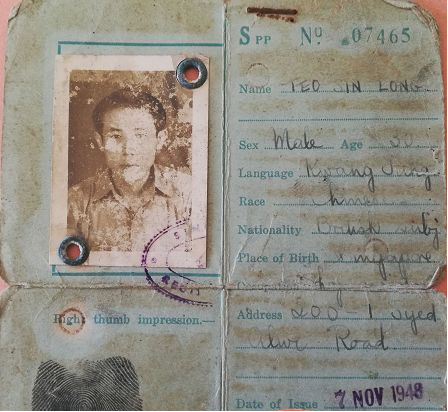 SPP Nº 07465
Name TEO JIN LONG
Sex Male Age
Language Kwang Tung
Race Chinese
Nationality British subj
Place of Birth Singapore
Occupation
Right thumb impression.—
Address 200-1 Syed
Alwi Road
Date of Issue 7 NOV 1948